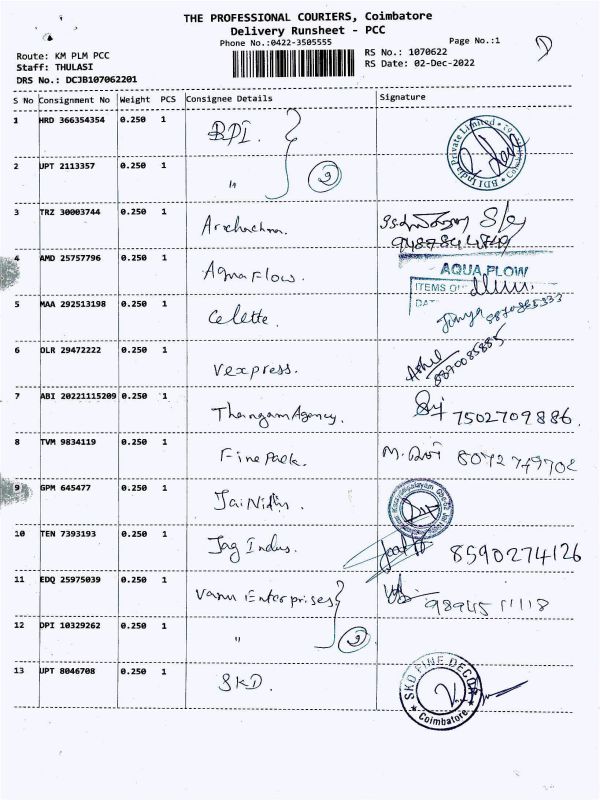 THE PROFESSIONAL COURIERS, Coimbatore
Delivery Runsheet - PCC
Phone No.:0422-3505555
Page No.:1
Route: KM PLM PCC
RS No.: 1070622
Staff: THULASI
RS Date: 02-Dec-2022
DRS No.: DCJB107062201
S No Consignment No Weight PCS Consignee Details Signature
1 HRD 366354354 0.250 1 BDI.
BDI India Private Limited
2 UPT 2113357 0.250 1 "
2
3 TRZ 30003744 0.250 1
9487844849
4 AMD 25757796 0.250 1 Aqua Flow.
AQUA FLOW
5 MAA 292513198 0.250 1 Celette.
6 DLR 29472222 0.250 1 Vexpress.
8870085885
7 ABI 20221115209 0.250 1 Thangam Agency. 7502709886.
8 TVM 9834119 0.250 1 Fine Pack. 8072749702
9 GPM 645477 0.250 1 Jai Nidhi.
10 TEN 7393193 0.250 1 Jag Indus. 8590274126
11 EDQ 25975039 0.250 1 Enterprises
12 DPI 10329262 0.250 1 "
2
13 UPT 8046708 0.250 1 SKD.
SKD FINE DECOR
Coimbatore